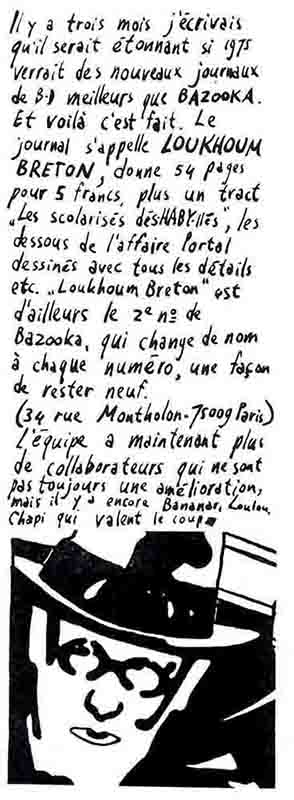 Il y a trois mois j'écrivais
qu'il serait étonnant si 1975
verrait des nouveaux journaux
de B.D meilleurs que BAZOOKA.
Et voilà c'est fait. Le
journal s'appelle LOUKHOUM
BRETON, donne 54 pages
pour 5 francs, plus un tract
„Les scolarisés désHABY-llés", les
dessous de l'affaire Portal
dessinés avec tous les détails
etc. „Loukhoum Breton" est
d'ailleurs le 2e no de
Bazooka, qui change de nom
à chaque numéro, une façon
de rester neuf.
(34 rue Montholon-75009 Paris)
L'équipe a maintenant plus
de collaborateurs qui ne sont
pas toujours une amélioration,
mais il y a encore Bananar, Loulou,
Chapi qui valent le coup